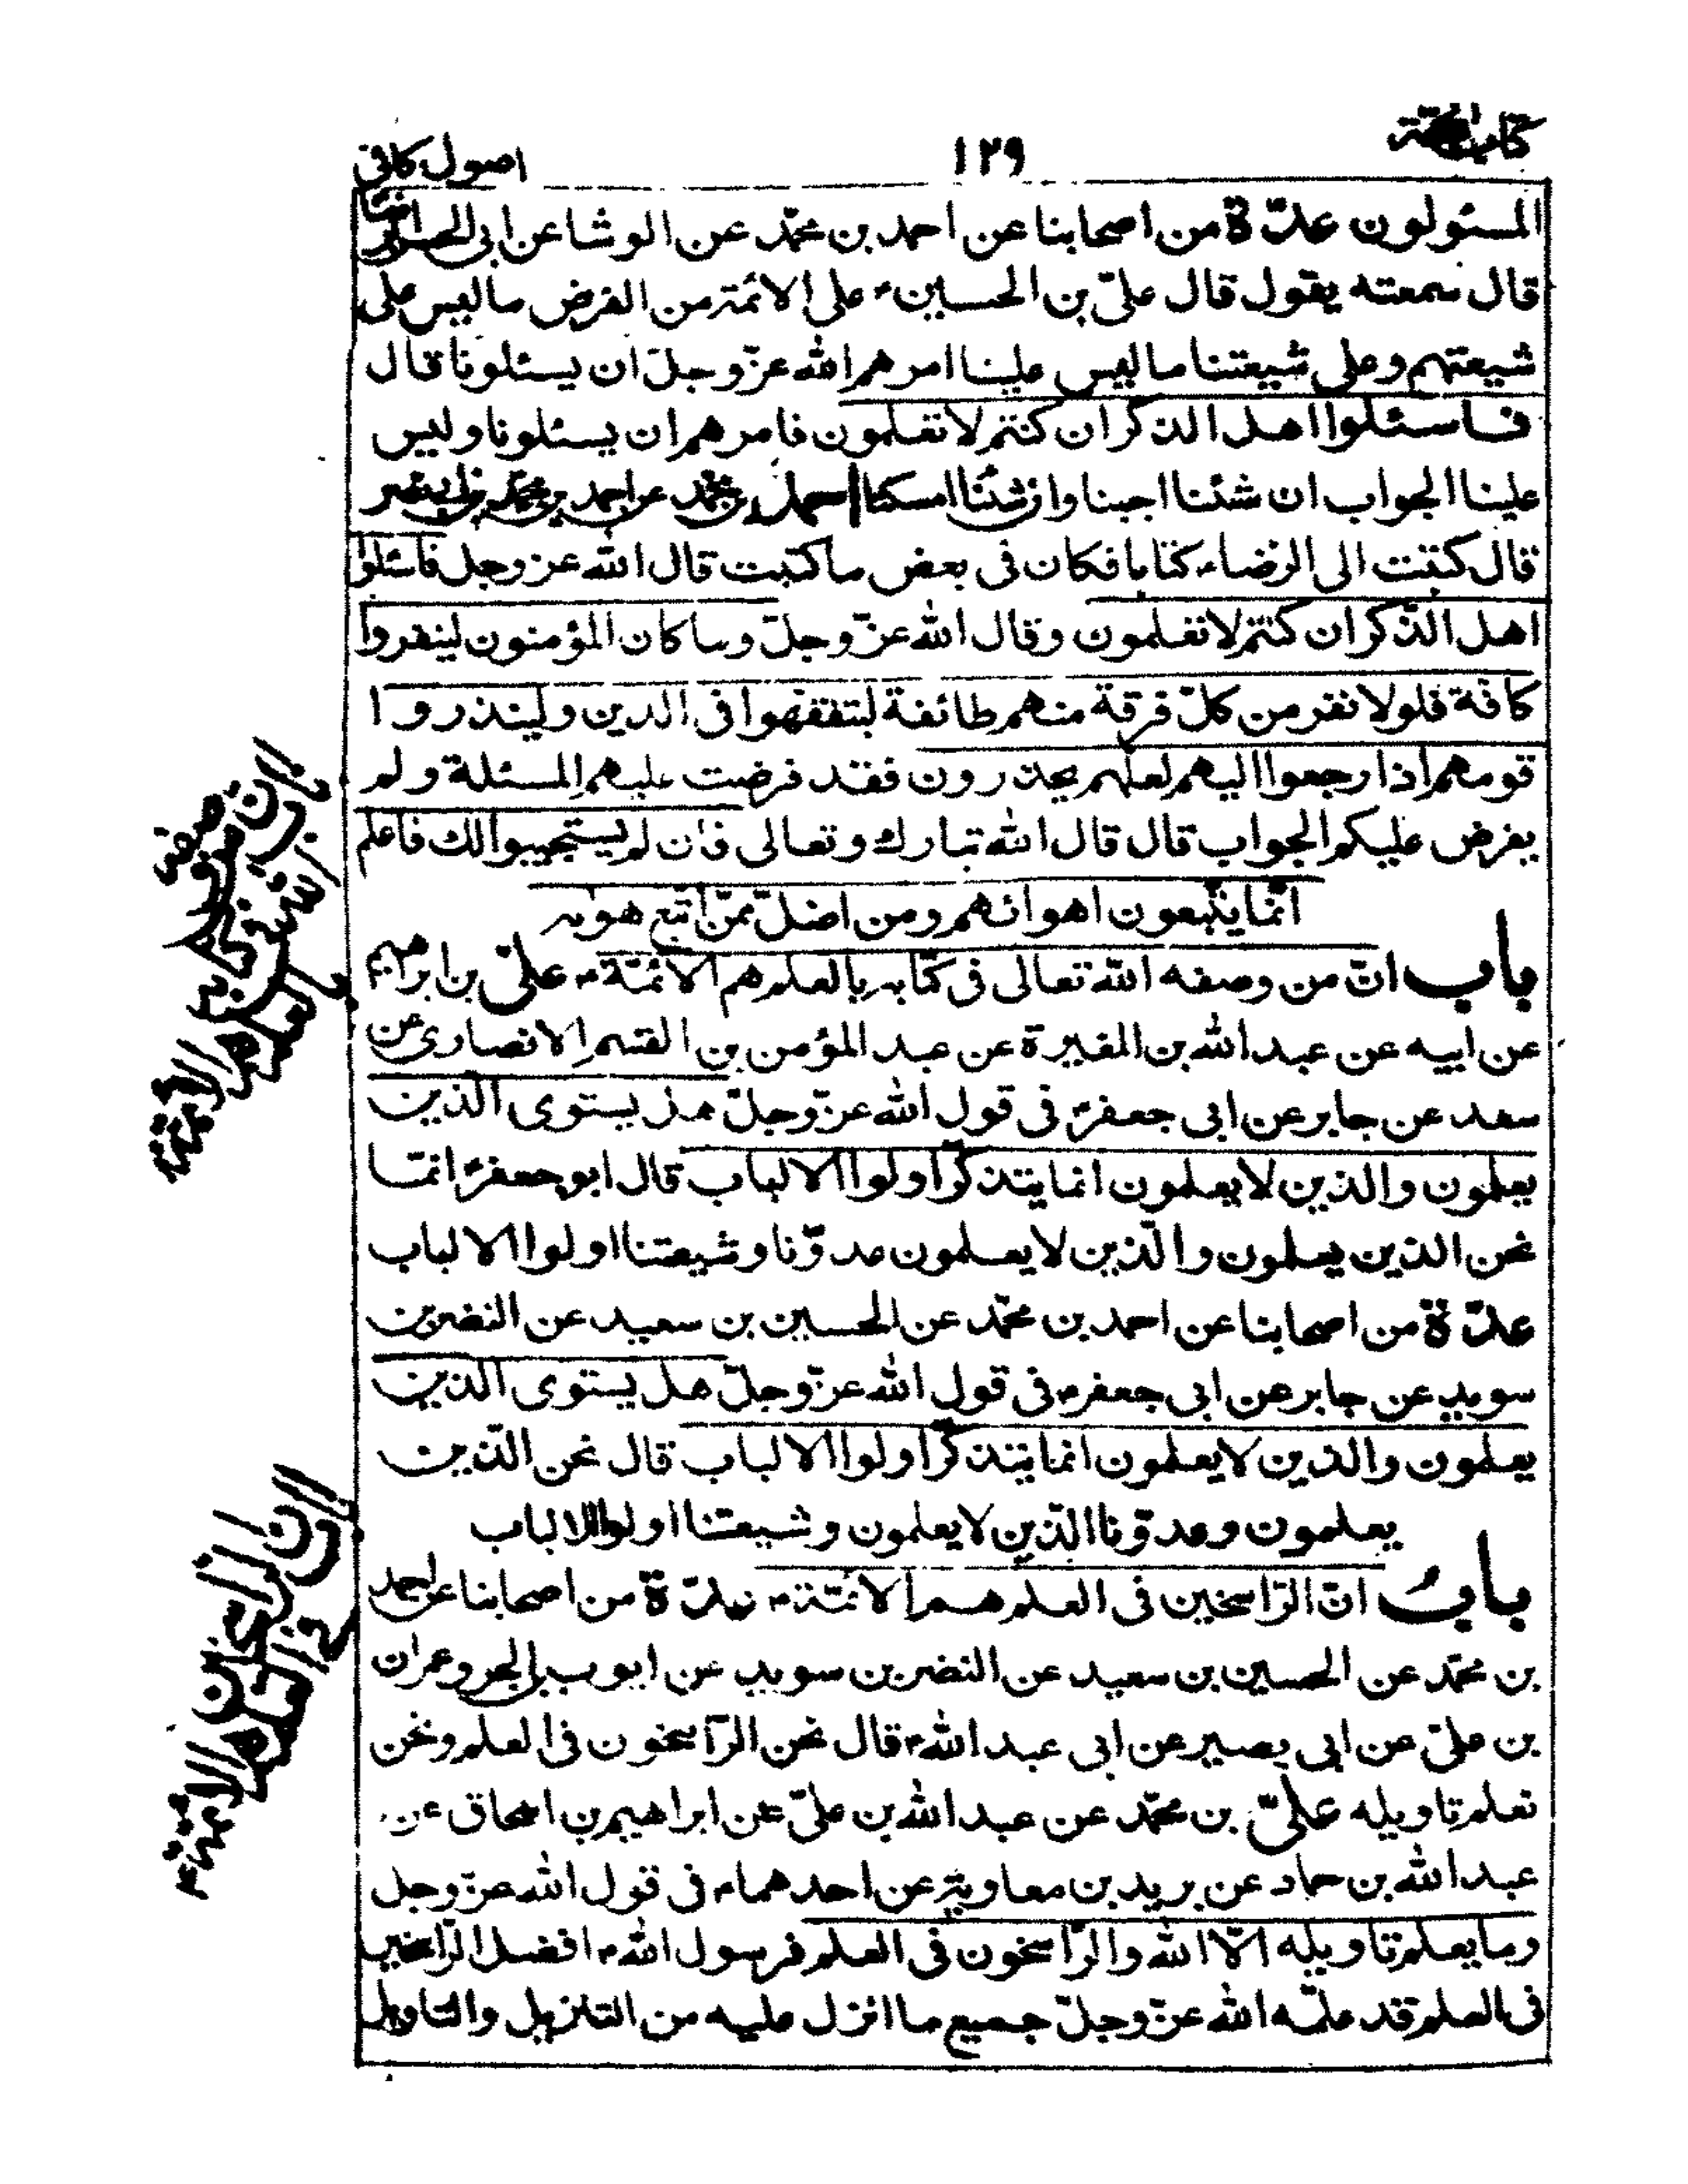 كتاب الحجة
١٢٩
اصول كافى
المسئولون عدّة من اصحابنا عن احمد بن محمّد عن الوشا عن ابى الحسن الرضا
قال سمعته يقول قال علىّ بن الحسينء على الائمة من الفرض ما ليس على
شيعتهم وعلى شيعتنا ما ليس علينا امرهم الله عزّ وجلّ ان يسئلونا قال
فاسئلوا اهل الذكر ان كنتم لا تعلمون فامرهم ان يسئلونا وليس
علينا الجواب ان شئنا اجبنا وان شئنا امسكنا احمد بن محمّد عن احمد بن محمّد بن ابى نصر
قال كتبت الى الرضاء كتابا فكان فى بعض ما كتبت قال الله عز وجل فاسئلوا
اهل الذّكر ان كنتم لا تعلمون وقال الله عزّ وجلّ وما كان المؤمنون لينفروا
كافة فلولا نفر من كلّ فرقة منهم طائفة ليتفقهوا فى الدين ولينذروا
قومهم اذا رجعوا اليهم لعلّهم يحذرون فقد فرضت عليهم المسئلة ولم
يفرض عليكم الجواب قال قال الله تبارك وتعالى فان لم يستجيبوا لك فاعلم
انّما يتّبعون اهوائهم ومن اضلّ ممّن اتّبع هويه
باب انّ من وصفه الله تعالى فى كتابه بالعلم هم الائمّةء علىّ بن ابراهيم
عن ابيه عن عبد الله بن المغيرة عن عبد المؤمن بن القسم الانصارى عن
سعد عن جابر عن ابى جعفرء فى قول الله عزّ وجلّ هل يستوى الّذين
يعلمون والذين لا يعلمون انما يتذكّر اولوا الالباب قال ابو جعفرء انّما
نحن الذين يعلمون والّذين لا يعلمون عدوّنا وشيعتنا اولوا الالباب
عدّة من اصحابنا عن احمد بن محمّد عن الحسين بن سعيد عن النضر بن
سويد عن جابر عن ابى جعفرء فى قول الله عزّ وجلّ هل يستوى الذين
يعلمون والذين لا يعلمون انما يتذكّر اولوا الالباب قال نحن الّذين
يعلمون وعدوّنا الّذين لا يعلمون وشيعتنا اولوا الالباب
باب انّ الرّاسخين فى العلم هم الائمّةء عدّة من اصحابنا عن احمد
بن محمّد عن الحسين بن سعيد عن النضر بن سويد عن ايوب بن الحر وعمران
بن علىّ عن ابى بصير عن ابى عبد اللهء قال نحن الرّاسخون فى العلم ونحن
نعلم تاويله علىّ بن محمّد عن عبد الله بن علىّ عن ابراهيم بن اسحاق عن
عبد الله بن حماد عن بريد بن معاوية عن احدهماء فى قول الله عزّ وجل
وما يعلم تاويله الّا الله والرّاسخون فى العلم فرسول اللهء افضل الرّاسخين
فى العلم قد علمّه الله عزّ وجلّ جميع ما انزل عليه من التنزيل والتاويل
باب ان من وصفه
الله فى كتابه
بالعلم هم الائمة
باب ان الراسخين
فى العلم هم الائمةء